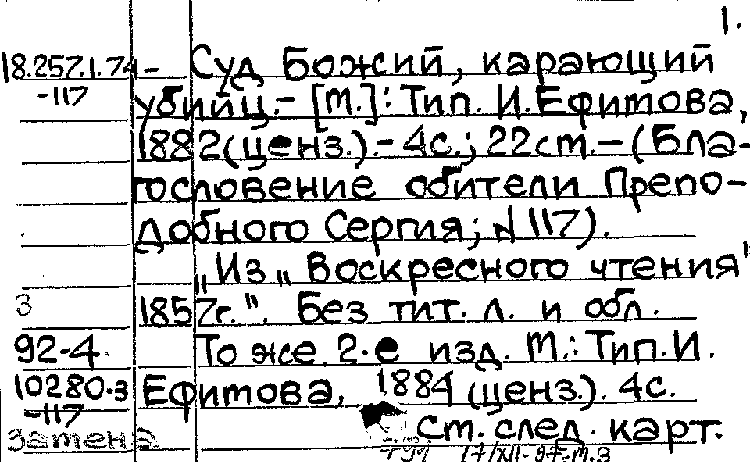 1.
18.257.1.74- Суд Божий, карающий
-117 убийц.- [М.]: Тип. И. Ефимова,
1882(ценз.).- 4с.; 22см.-(Бла-
гословение обители Препо-
добного Сергия; N 117).
„Из „Воскресного чтения"
3 1857г.". Без тит. л. и обл.
92-4 То же 2-е изд. М.: Тип. И.
10280.3 Ефимова, 1884 (ценз.). 4с.
-117
замена см. след. карт.